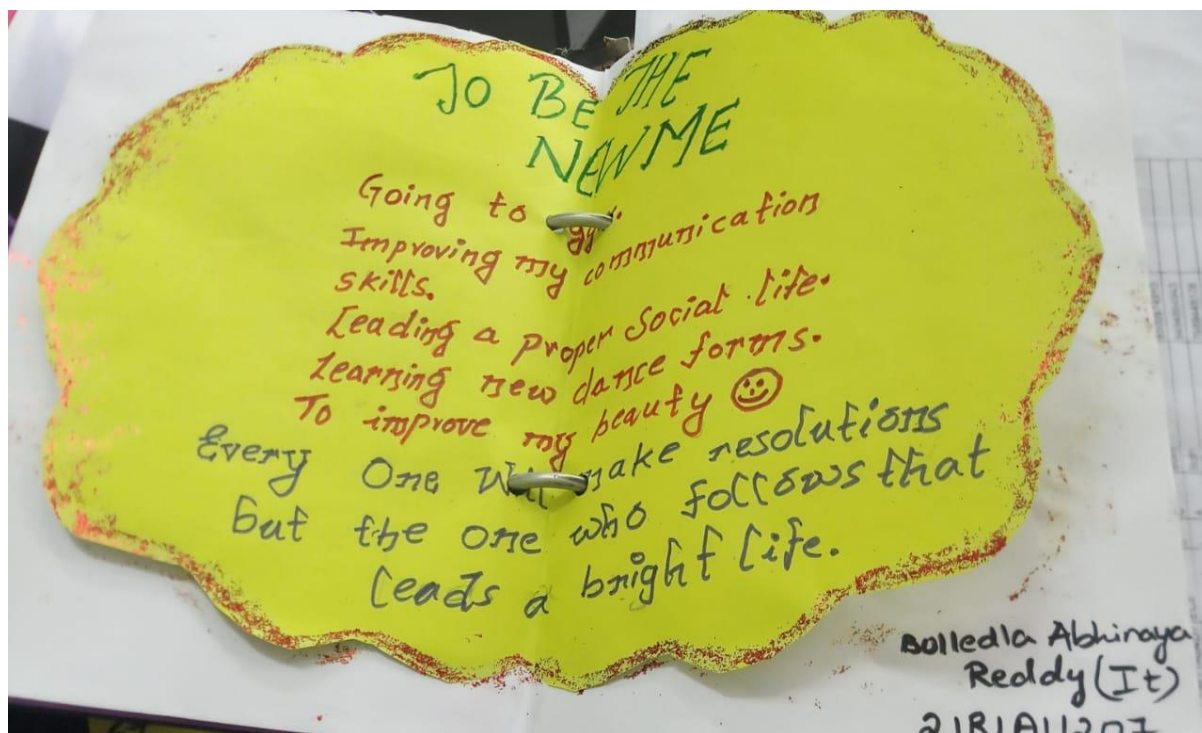 TO BE THE
NEW ME
Going to
Improving my communication
skills.
Leading a proper Social life.
Learning new dance forms.
To improve my beauty
Every One Will make resolutions
but the one who follows that
leads a bright life.
Bolledla Abhinaya
Reddy (It)